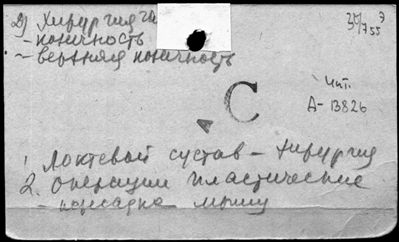 2) Хирургия
- конечность
- верхняя конечность
Чит.
А-13826
С
1. Локтевой сустав - хирургия
2. Операции пластические
- пересадка мышц